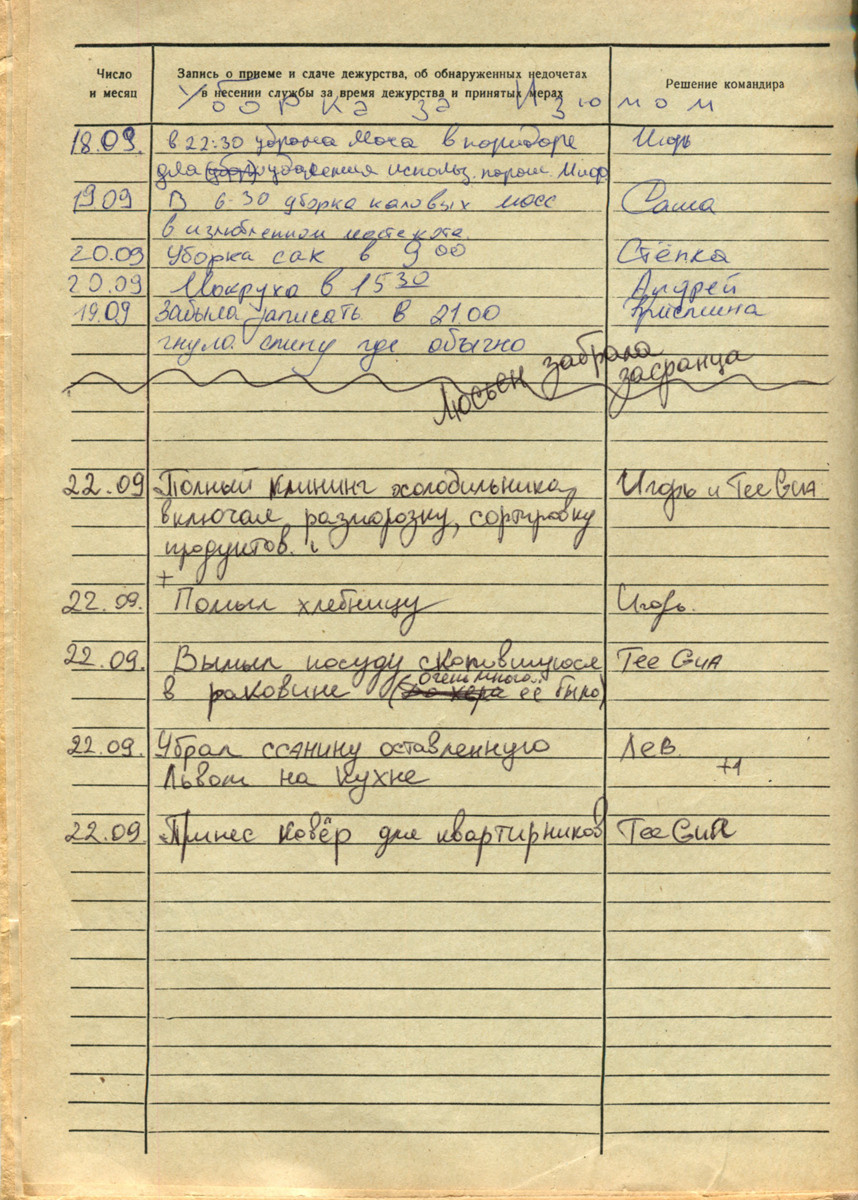 Число и месяц
Запись о приеме и сдаче дежурства, об обнаруженных недочетах
в несении службы за время дежурства и принятых мерах
Решение командира
Уборка за Изюмом
18.09. в 22:30 убрана моча в коридоре Игорь
для удаления использ. порош. Миф
19.09 В 6-30 уборка каловых масс Саша
в излюбленном месте кота.
20.09 Уборка сак в 9 00 Стёпка
20.09 Мокруха в 15 30 Андрей
19.09 Забыла записать в 21 00 Кристина
гнула спину где обычно
Люсьен забрала засранца
22.09 Полный клининг холодильника, Игорь и Tee Gua
включая разморозку, сортировку
продуктов.
+
22.09. Помыл хлебницу Игорь.
22.09. Вымыл посуду скопившуюся Tee Gua
очень много
в раковине (до хера её было)
22.09. Убрал ссанину оставленную Лев.
Львом на кухне +1
22.09 Принес ковёр для квартирников Tee Gua